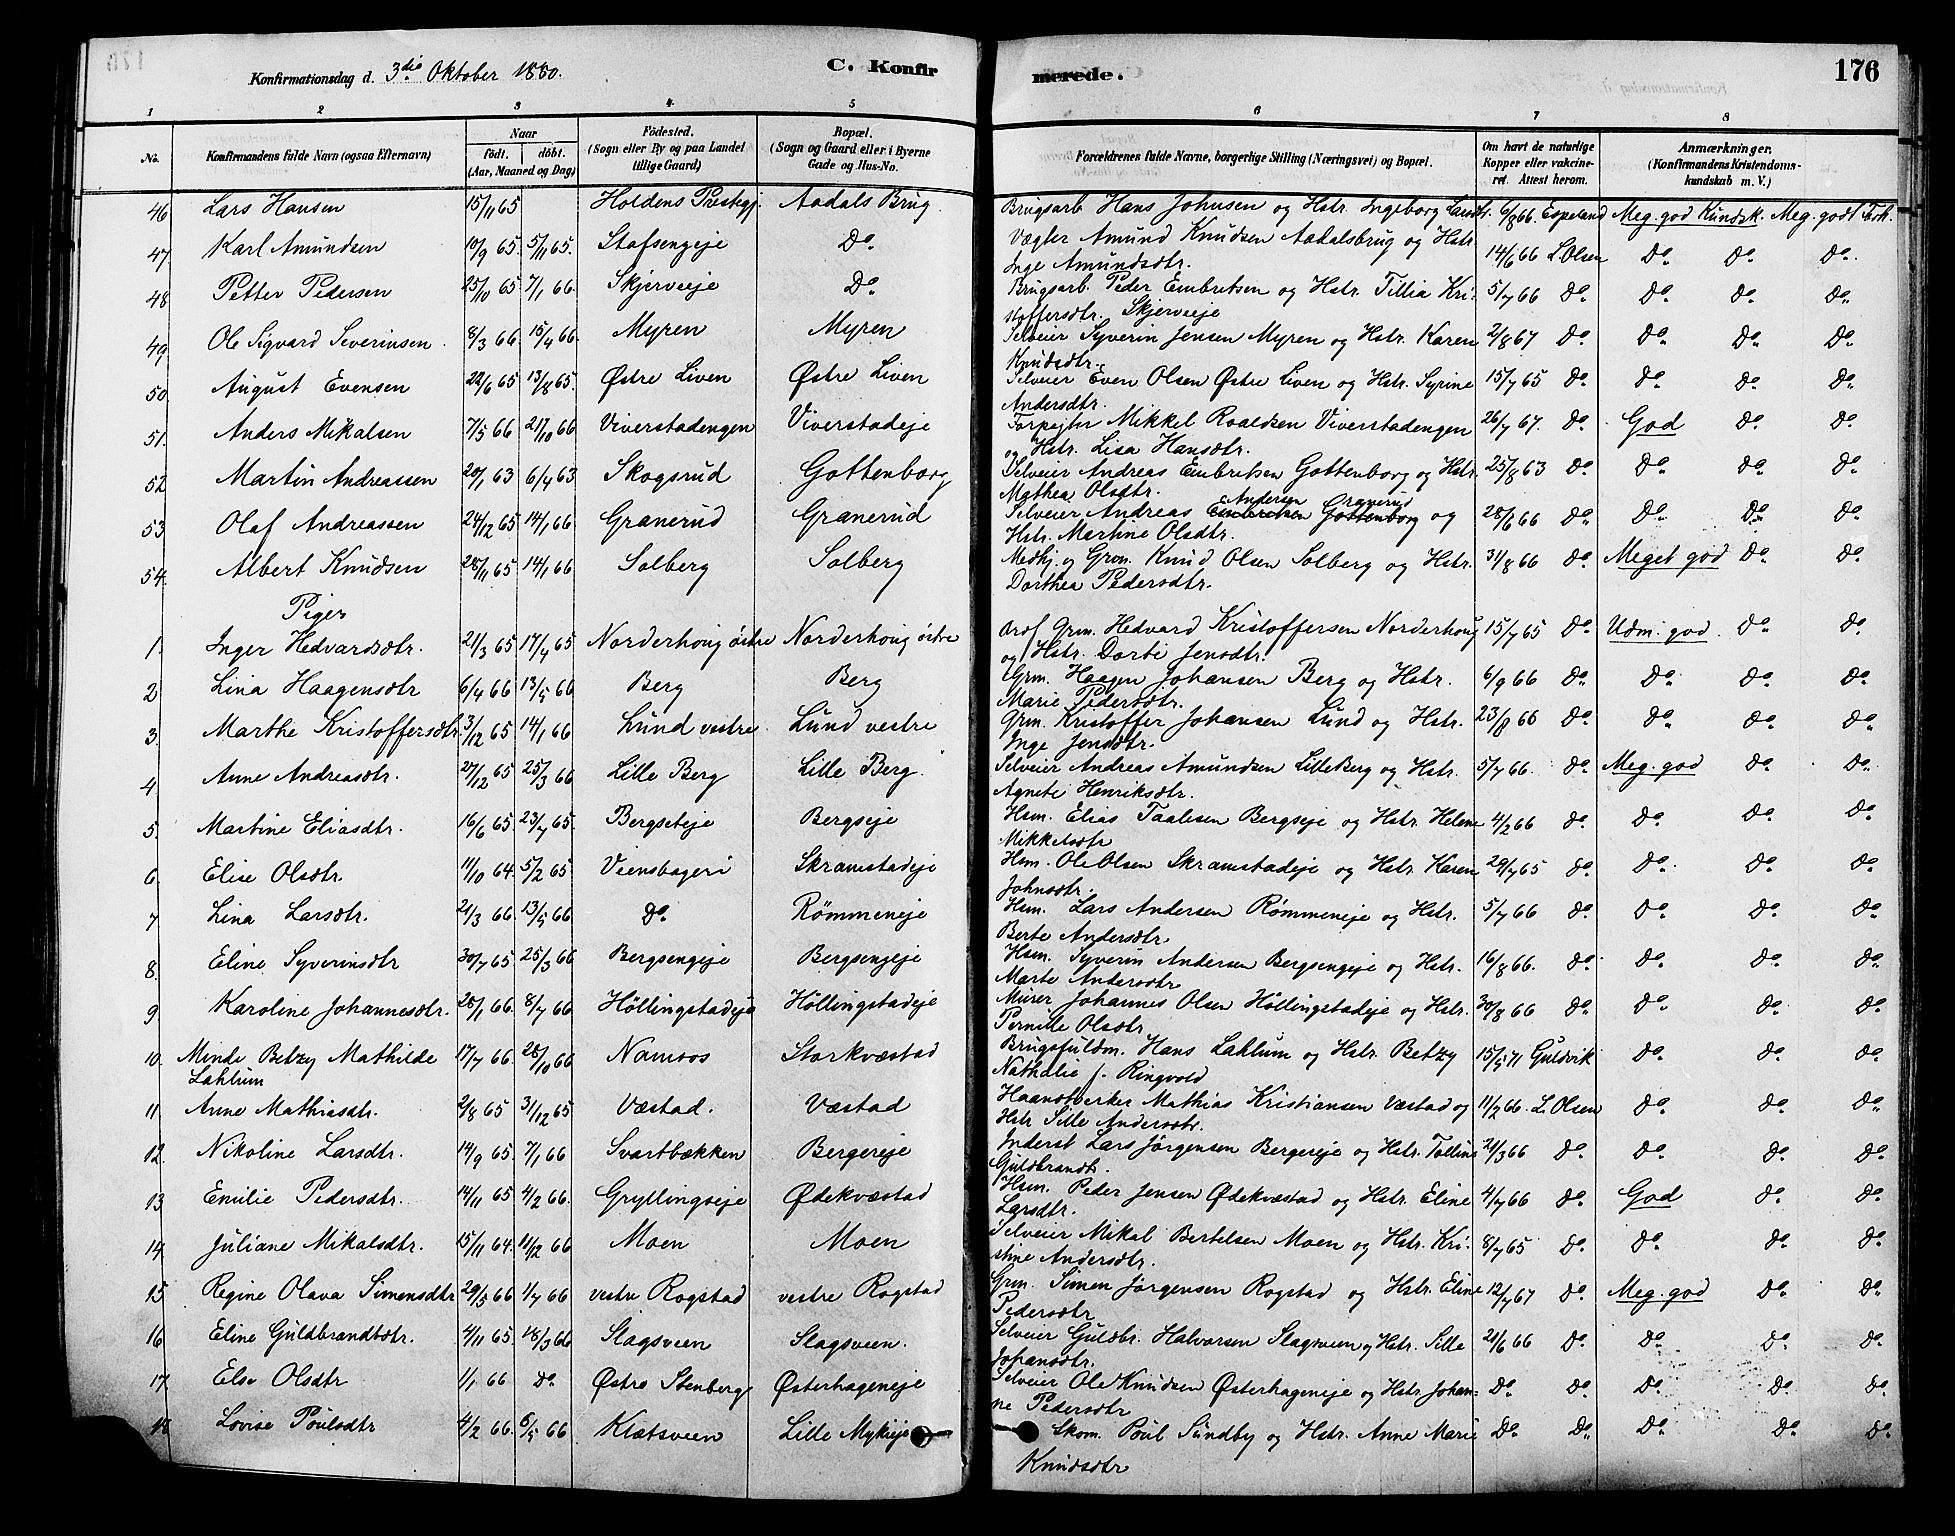 Konfirmationsdag d. 3die Oktober 1880.
C. Konfirmerede.
176
1 2 3 4 5 6 7 8
No.
Konfirmandens fulde Navn (ogsaa Efternavn)
Naar
född. döbt.
(Aar, Maaned og Dag)
Födested.
(Sogn eller By og paa Landet
tillige Gaard)
Bopæl.
(Sogn og Gaard eller i Byerne
Gade og Hus-No.
Forældrenes fulde Navne, borgerlige Stilling (Næringsvei) og Bopæl.
Om havt de naturlige
Kopper eller vakcine-
ret. Attest herom.
Anmærkninger.
(Konfirmandens Kristendoms-
kundskab m. V.)
46 Lars Hansen 15/11 65 Holdens Prestegj. Aadals Brug. Brugsarb. Hans Johnsen og Hstr. Ingeborg Larsdtr. 6/8 66. Espeland Meg. god Kundsk. Meg. godt Forh.
47 Karl Amundsen 10/9 65. 5/11 65. Stafsengeje Do Vægter Amund Knudsen Aadalsbrug og Hstr.
Inge Amundsdtr. 14/6 66 L. Olsen Do Do Do
48 Petter Pedersen 25/10 65 7/1 66. Skjerveie Do Brugsarb. Peder Embretsen og Hstr. Tillia Kri-
stoffersdtr. Skjerveie 5/7 66 Do Do Do Do
49 Ole Sigvard Severinsen 8/3 66 15/4 66. Myren Myren Selveier Syverin Jensen Myren og Hstr. Karen
Knudsdtr. 2/8 67 Do Do Do Do
50. August Evensen 22/6 65 13/8 65. Østre Liven Østre Liven Selveier Even Olsen Østre Liven og Hstr. Syrine
Andersdtr. 15/7 65 Do Do Do Do
51. Anders Mikalsen 7/5 66 21/10 66 Viverstadengen Viverstadeje Forpagter Mikkel Roaldsen Viverstadengen
og Hstr. Lisa Hansdtr. 26/7 67. Do God Do Do
52 Martin Andreassen 20/1 63 6/4 63 Skogsrud Gottenborg Selveier Andreas Embretsen Gottenborg og Hstr.
Mathea Olsdtr. 25/8 63 Do Do Do Do
53 Olaf Andreassen 24/12 65 14/1 66 Granerud Granerud Selveier Andreas Embretsen Andersen Gottenborg Granerud og
Hstr. Martine Olsdtr. 28/6 66 Do Do Do Do
54. Albert Knudsen 28/11 65 14/1 66 Solberg Solberg Medhj. og Grm. Knud Olsen Solberg og Hstr.
Dorthea Pedersdtr. 31/8 66 Do Meget god Do Do
Piger
1. Inger Hedvardsdtr. 21/3 65 17/4 65 Norderhoug östre Norderhoug östre Grm. Hedvard Kristoffersen Norderhoug
og Hstr. Dorte Jensdtr. 15/7 65 Do Udm. god. Do Do
2 Lina Haagensdtr 6/4 66 13/5 66 Berg Berg Grm. Haagen Johansen Berg og Hstr.
Marie Pedersdtr. 6/9 66 Do Do Do Do
3. Marthe Kristoffersdtr 3/12 65 14/1 66 Lund vestre. Lund vestre Grm. Kristoffer Johansen Lund og Hstr.
Inge Jensdtr. 23/8 66 Do Do Do Do
4 Anne Andreasdtr. 27/12 65 25/3 66 Lille Berg Lille Berg. Selveier Andreas Amundsen Lille Berg og Hstr.
Agnete Henriksdtr. 5/7 66. Do Meg. god Do Do
5. Martine Eliasdtr. 16/6 65. 23/7 65. Bergseteje Bergseje Hsm. Elias Taalesen Bergseje og Hstr. Helene
Mikkelsdtr 4/2 66 Do Do Do Do
6. Elise Olsdtr. 11/10 64. 5/2 65 Veensbageri Skramstadeje Hsm. Ole Olsen Skramstadeje og Hstr. Karen
Johnsdtr. 29/7 65 Do Do Do Do
7 Lina Larsdtr. 21/3 66. 13/5 66 Do Römmeneje Hsm. Lars Andersen Römmeneje og Hstr.
Berte Andersdtr. 5/7 66 Do Do Do Do
8. Eline Syverinsdtr 30/7 65 25/3 66 Bergsengeje Bergsenjeje Hsm. Syverin Andersen Bergsengeje og Hstr.
Marte Andersdtr 16/8 66. Do Do Do Do
9 Karoline Johannesdtr. 28/1 66. 8/7 66 Höllingstadeje Höllingstadeje Murer Johannes Olsen Höllingstadeje og Hstr.
Pernille Olsdtr 30/8 66 Do Do Do Do
10. Minde Betzy Mathilde
Lahlum 17/7 66. 28/10 66 Namsos Storkvæstad Brugsfuldm. Hans Lahlum og Hstr. Betzy
Nathalie f. Ringvold 15/5 71 Guldvik Do Do Do
11. Anne Mathiasdtr. 2/8 65 31/12 65 Væstad. Væstad Haandverker Mathias Kristiansen Væstad og
Hstr Sille Andersdtr. 11/2 66. L. Olsen Do Do Do
12. Nikoline Larsdtr. 14/9 65. 7/1 66 Svartbækken Bergereje Inderst Lars Jörgensen Bergereje og Hstr. Tolline
Guldbrandt. 21/3 66 Do Do Do Do
13 Emilie Pedersdtr. 14/11 65 4/2 66. Gryllingseje Ødekvæstad Hsm. Peder Jensen Ødekvæstad og Hstr. Eline
Larsdtr. 4/7 66 Do God Do Do
14. Juliane Mikalsdtr. 15/11 64. 11/12 66 Moen Moen Selveier Mikal Bertelsen Moen og Hstr. Kri-
stine Andersdtr. 8/7 65 Do Do Do Do
15 Regine Olava Simensdtr 29/5 66 1/7 66 vestre Rogstad vestre Rogstad Grm. Simen Jörgensen Rogstad og Hstr. Eline
Pedersdtr 12/7 67 Do Meg. god Do Do
16 Eline Guldbrandsdtr. 4/11 65. 18/3 66 Slagsveen Slagsveen. Selveier Guldbr. Halvorsen Slagsveen og Hstr. Sille
Johansdtr. 21/6 66 Do Do Do Do
17. Else Olsdtr 1/1 66 Do Østre Stenberg Østerhageneje Selveier Ole Knudsen Østerhageneje og Hstr. Johan-
ne Pedersdtr Do Do Do Do Do
18 Lovise Poulsdtr 4/2 66. 6/5 66 Klætsveen Lille Mykleje Skom. Poul Sundby og Hstr. Anne Marie
Knudsdtr Do Do Do Do Do